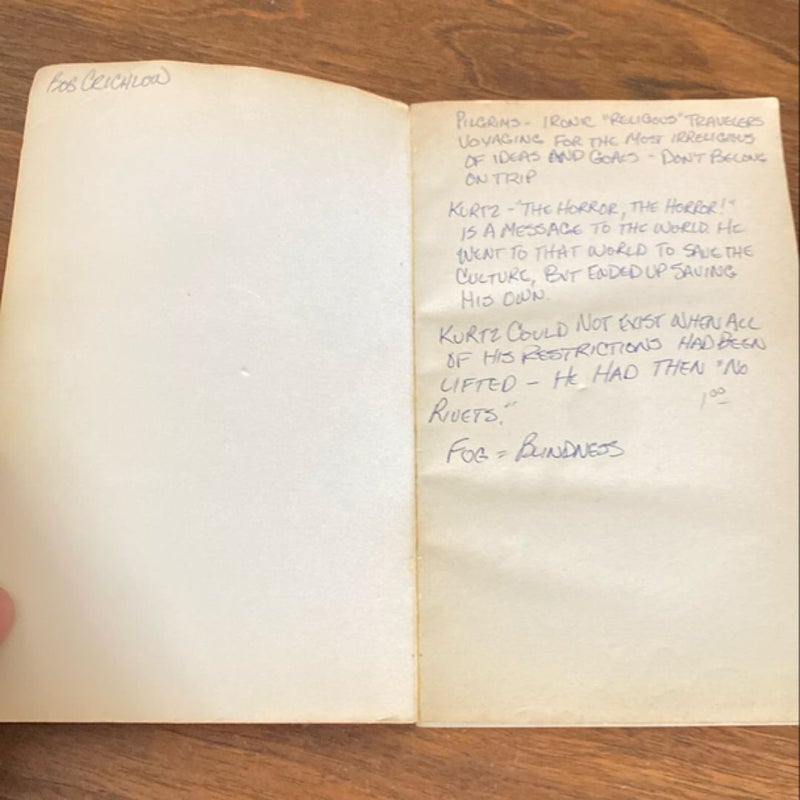 BOB CRICHLOW
PILGRIMS - IRONIC "RELIGIOUS" TRAVELERS
VOYAGING FOR THE MOST IRRELIGIOUS
OF IDEAS AND GOALS - DON'T BELONG
ON TRIP
KURTZ - "THE HORROR, THE HORROR!"
IS A MESSAGE TO THE WORLD. HE
WENT TO THAT WORLD TO SAVE THE
CULTURE, BUT ENDED UP SAVING
HIS OWN.
KURTZ COULD NOT EXIST WHEN ALL
OF HIS RESTRICTIONS HAD BEEN
LIFTED - HE HAD THEN "NO
RIVETS."
1.00
FOG = BLINDNESS